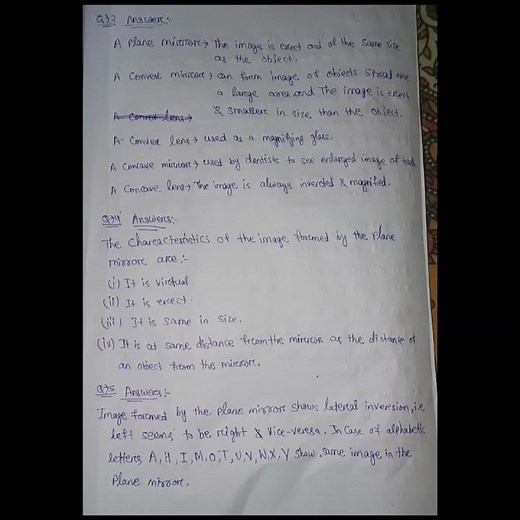 Q73 Answer:-
A Plane mirror→ The image is erect and of the same size
as the object.
A Convex mirror→ can form image of objects spread over
a large area and The image is erect
A Convex lens→ & smaller in size than the object.
A Convex lens→ used as a magnifying glass.
A Concave mirror→ used by dentists to see enlarged image of teeth
A Concave lens→ The image is always inverted & magnified.
Q74 Answers:-
The characteristics of the image formed by the plane
mirror are:-
(i) It is virtual
(ii) It is erect.
(iii) It is same in size.
(iv) It is at same distance from the mirror as the distance of
an object from the mirror.
Q75 Answers:-
Image formed by the plane mirror shows lateral inversion, i.e,
left seems to be right & vice-versa. In case of alphabetic
letters A, H, I, M, O, T, U, V, W, X, Y show same image, in the
Plane mirror.